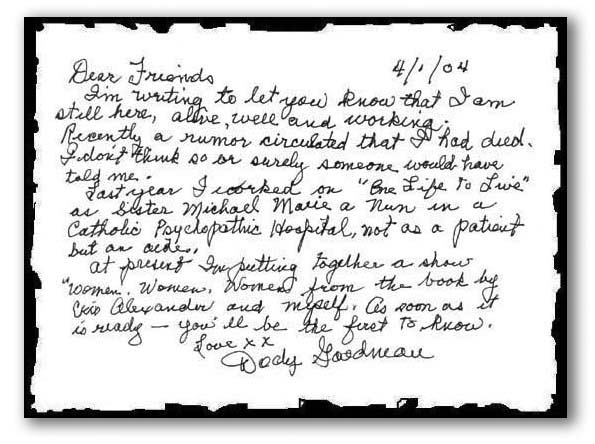 Dear Friends 4/1/04
I'm writing to let you know that I am
still here, alive, well and working.
Recently a rumor circulated that I had died.
I don't think so or surely someone would have
told me.
Last year I worked on "One Life To Live"
as Sister Michael Marie a Nun in a
Catholic Psychopathic Hospital, not as a patient
but an aide.
at present I'm putting together a show
"Women, Women, Women from the book by
Cris Alexander and myself. As soon as it
is ready — you'll be the first To know.
Love x x
Dody Goodman